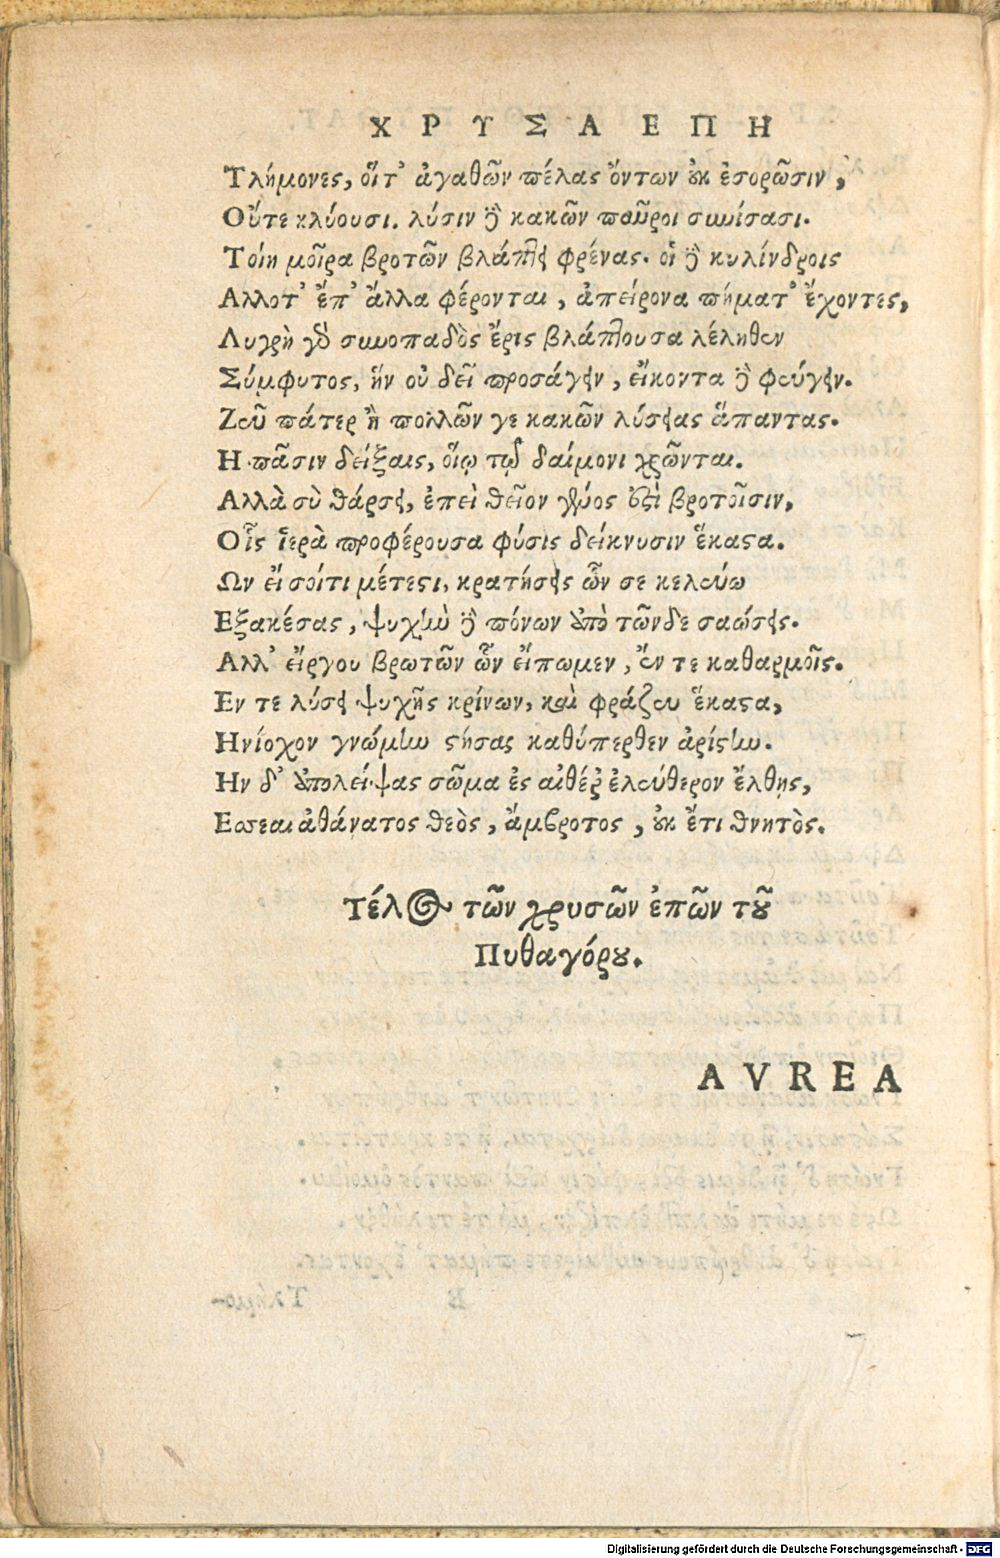 ΧΡΥΣΑ ΕΠΗ
Τλήμονες, οἵτ' ἀγαθῶν πέλας ὄντων ȣκ ἐσορῶσιν,
Οὔτε κλύουσι. λύσιν δὲ κακῶν παῦροι συνίσασι.
Τοίη μοῖρα βροτῶν βλάπτει φρένας. οἱ δὲ κυλίνδροις
Αλλοτ' ἔπ' ἄλλα φέρονται, ἀπείρονα πήματ' ἔχοντες,
Λυγρὴ γὰρ συνοπαδὸς ἔρις βλάπτουσα λέληθεν
Σύμφυτος, ἥν οὐ δεῖ προσάγειν, εἴκοντα δὲ φεύγειν.
Ζεῦ πάτερ ἢ πολλῶν γε κακῶν λύσειας ἅπαντας.
Η πᾶσιν δείξαις, οἵῳ τῷ δαίμονι χρῶνται.
Αλλὰ σὺ θάρσει, ἐπεὶ θεῖον γένος ἐστὶ βροτοῖσιν,
Οἷς ἱερὰ προφέρουσα φύσις δείκνυσιν ἕκαστα.
Ων εἴ σοίτι μέτεστι, κρατήσεις ὧν σε κελεύω
Εξακέσας, ψυχὴν δὲ πόνων ἀπὸ τῶνδε σαώσεις.
Αλλ' εἴργου βρωτῶν ὧν εἴπωμεν, ἔν τε καθαρμοῖς.
Εν τε λύσει ψυχῆς κρίνων, καὶ φράζευ ἕκαστα,
Ηνίοχον γνώμην στήσας καθύπερθεν ἀρίστην.
Ην δ' ἀπολείψας σῶμα ἐς αἰθέρ' ἐλεύθερον ἔλθῃς,
Εσσεαι ἀθάνατος θεὸς, ἄμβροτος, ȣκ ἔτι θνητὸς.
Τέλος τῶν χρυσῶν ἐπῶν τȣ͂
Πυθαγόρȣ.
AVREA
Digitalisierung gefördert durch die Deutsche Forschungsgemeinschaft - DFG